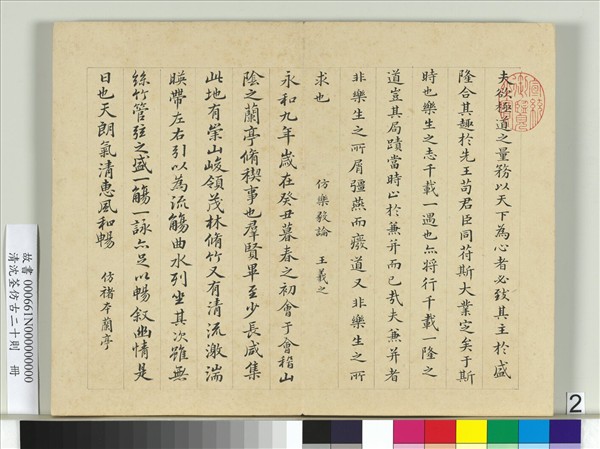 夫欲極道之量務以天下為心者必致其主於盛
隆合其趣於先王苟君臣同荷斯大業定矣于斯
時也樂生之志千載一遇也亦將行千載一隆之
道豈其局蹟當時止於兼并而已哉夫兼并者
非樂生之所屑彊燕而癈道又非樂生之所
求也
仿樂毅論 王羲之
永和九年歲在癸丑暮春之初會于會稽山
陰之蘭亭脩禊事也羣賢畢至少長咸集
此地有崇山峻領茂林脩竹又有清流激湍
暎帶左右引以為流觴曲水列坐其次雖無
絲竹管弦之盛一觴一詠亦足以暢叙幽情是
日也天朗氣清惠風和暢
仿褚本蘭亭
故書 000661N000000000
清沈荃仿古二十則 冊
2